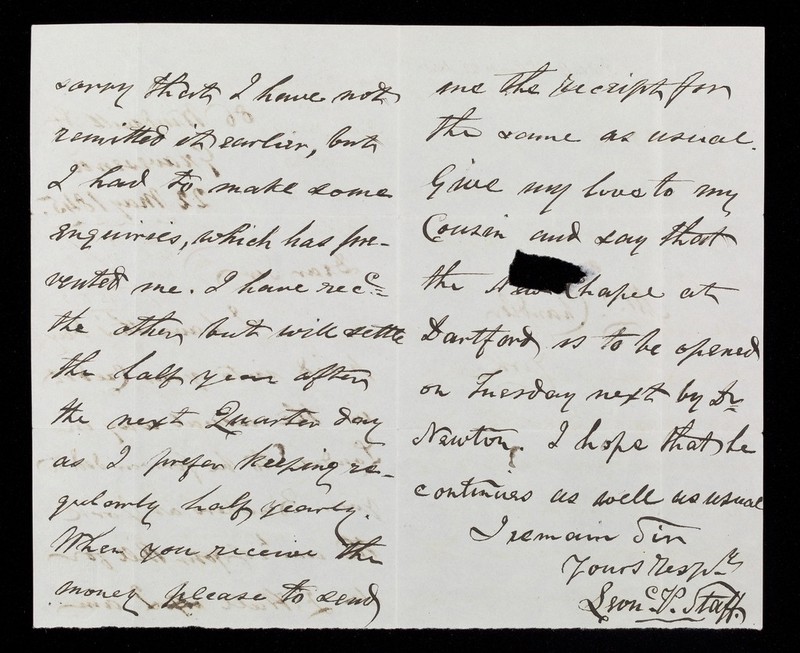 sorry that I have not
remitted it earlier, but
I had to make some
enquiries, which has pre-
vented me. I have recd
the other, but will settle
the half year after
the next Quarter day
as I prefer keeping re-
gularly half yearly.
When you receive the
money please to send
me the receipt for
the same as usual.
Give my love to my
Cousin and say that
the New Chapel at
Dartford is to be opened
on Tuesday next by Dr
Newton. I hope that he
continues as well as usual
I remain Sir
Yours Respy
Leond. P. Staff.